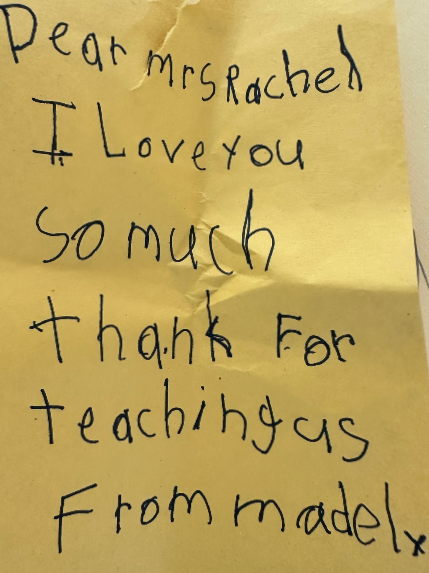 Dear mrs Rachel
I Love you
so much
thank For
teaching us
From madel x